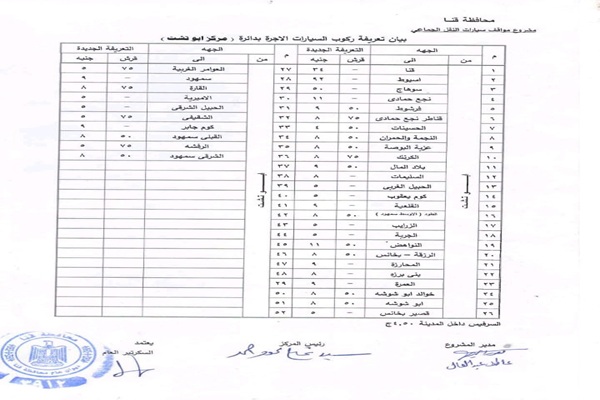 محافظة قنا
مشروع مواقف سيارات النقل الجماعى
بيان تعريفة ركوب السيارات الاجرة بدائرة ( مركز ابو تشت )
م الجهه التعريفة الجديدة م الجهه التعريفة الجديدة
من الى قرش جنيه من الى قرش جنيه
١ قنا – ٣٤ ٢٧ العوامر الغربية ٧٥ ٥
٢ اسيوط – ٩٢ ٢٨ سمهود – ٩
٣ سوهاج – ٥٠ ٢٩ القارة ٧٥ ٨
٤ نجع حمادى – ١١ ٣٠ الاميرية – ٥
٥ فرشوط ٥٠ ٩ ٣١ الحبيل الشرقى – ٥
٦ قناطر نجع حمادى ٧٥ ٨ ٣٢ الشقيفى ٧٥ ٥
٧ الحسينات ٥٠ ٤ ٣٣ كوم جابر – ٩
٨ النجمة والحمران ٥٠ ٨ ٣٤ القبلى سمهود ٥٠ ٨
٩ عزبة البوصة ٥٠ ٨ ٣٥ الرفشه ٧٥ ٥
١٠ الكرنك ٧٥ ٨ ٣٦ الشرقى سمهود ٥٠ ٨
١١ بلاد المال ٥٠ ٩ ٣٧
١٢ السليمات – ٨ ٣٨
١٣ الحبيل الغربى – ٥ ٣٩
١٤ كوم يعقوب – ٥ ٤٠
١٥ القلعية – ٩ ٤١
١٦ ( الاوسط سمهود ) ٥٠ ٨ ٤٢
١٧ الزرايب – ٥ ٤٣
١٨ الجربة – ٥ ٤٤
١٩ النواهض ٥٠ ١١ ٤٥
٢٠ الرزقة – بخانس ٥٠ ٨ ٤٦
٢١ المحارزة – ٩ ٤٧
٢٢ بنى برزه – ٨ ٤٨
٢٣ العمرة – ٩ ٤٩
٢٤ خوالد ابو شوشه ٥٠ ٨ ٥٠
٢٥ ابو شوشه – ٨ ٥١
٢٦ قصير بخانس – ٥ ٥٢
ابو تشت
ابو تشت
السرفيس داخل المدينة ٤,٥٠ ج
مدير المشروع رئيس المركز يعتمد
السكرتير العام
محافظة قنا